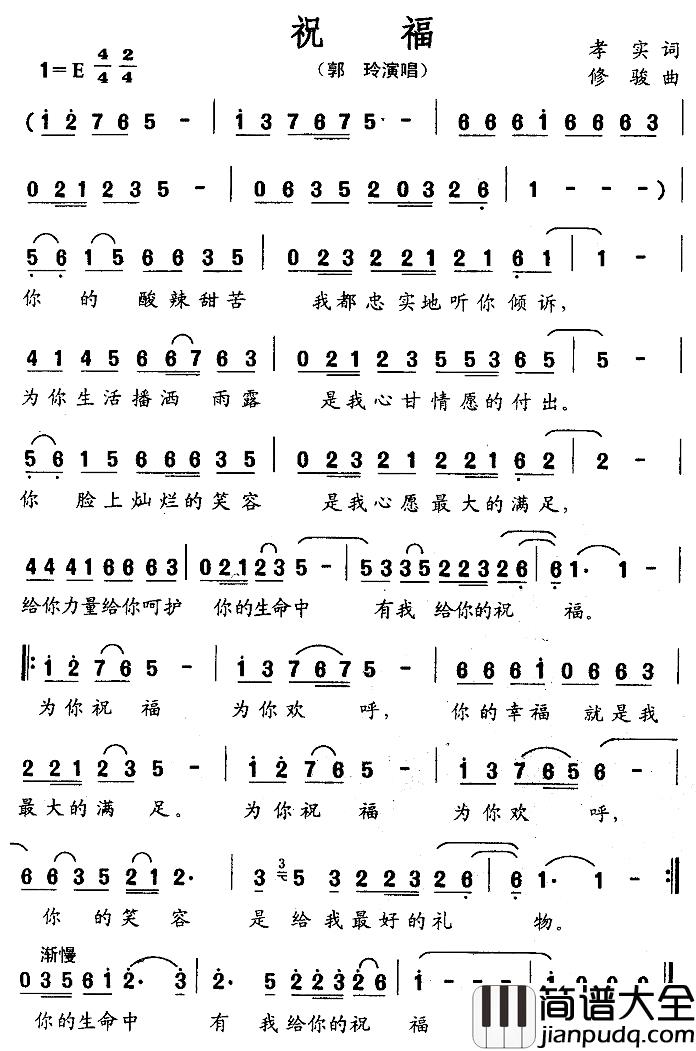 祝 福
1=E 4/4 2/4
(郭 玲演唱)
孝 实词
修 骏曲
( i 2 7 6 5 - | i 3 7 6 7 5 - | 6 6 6 i 6 6 6 3 |
0 2 1 2 3 5 - | 0 6 3 5 2 0 3 2 6 | 1 - - - )
5 6 1 5 6 6 3 5 | 0 2 3 2 2 1 2 1 6 1 | 1 -
你 的 酸辣甜苦 我都忠实地听你倾诉,
4 1 4 5 6 6 7 6 3 | 0 2 1 2 3 5 5 3 6 5 | 5 -
为你生活播洒 雨露 是我心甘情愿的付出。
5 6 1 5 6 6 6 3 5 | 0 2 3 2 1 2 2 1 6 2 | 2 -
你 脸上灿烂的笑容 是我心愿最大的满足,
4 4 4 1 6 6 6 3 | 0 2 1 2 3 5 - | 5 3 3 5 2 2 3 2 6 | 6 1 · 1 -
给你力量给你呵护 你的生命中 有我 给你的祝 福。
‖: i 2 7 6 5 - | i 3 7 6 7 5 - | 6 6 6 i 0 6 6 3 |
为你祝 福 为你欢 呼, 你的幸福 就是我
2 2 1 2 3 5 - | i 2 7 6 5 - | i 3 7 6 5 6 -
最大的满 足。 为你祝 福 为你欢 呼,
6 6 3 5 2 1 2 · | 3 5 3 2 2 3 2 6 | 6 1 · 1 - :‖
你 的笑 容 是 给我最好的礼 物。
渐慢
0 3 5 6 i 2 · 3 | 2 · 5 2 2 3 2 6 | i - - - | i 0 0 0 ‖
你的生命中 有 我给你的祝 福
简谱大全
jianpudq.com